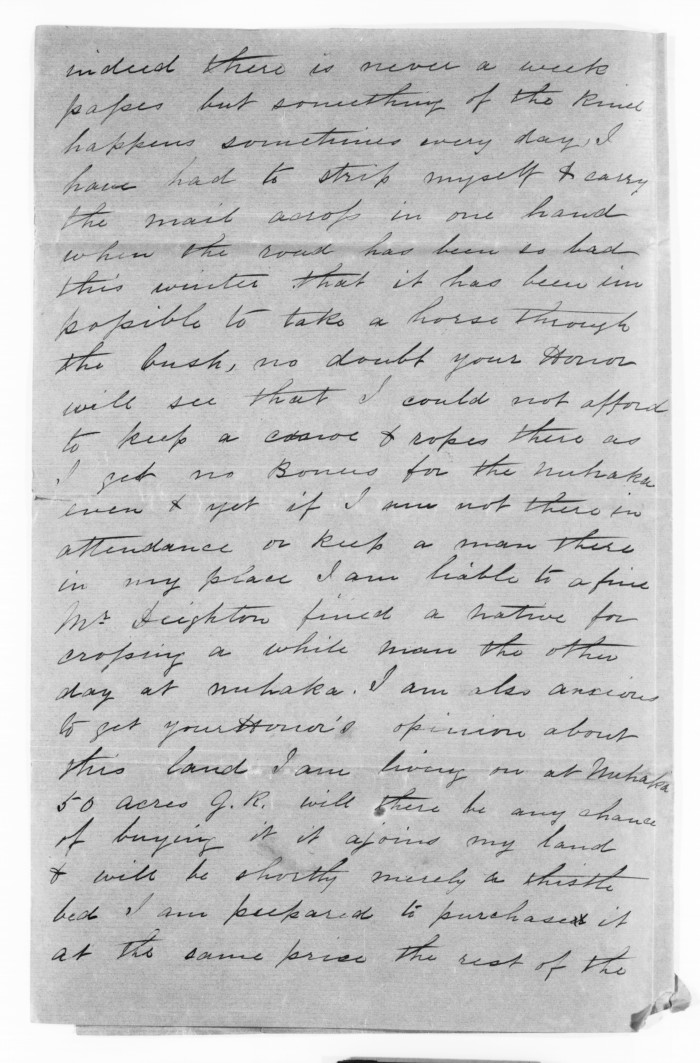 indeed there is never a week
passes but something of the kind
happens sometimes every day, I
have had to strip myself & carry
the mail across in one hand
when the road has been so bad
this winter that it has been im
possible to take a horse through
the bush, no doubt your Honor
will see that I could not afford
to keep a canoe & ropes there as
I get no Boners for the Nuhaka
even & yet if I am not there in
attendance or keep a man there
in my place I am liable to a fine
Mr Deighton fined a native for
crossing a while man the other
day at nuhaka. I am also anxious
to get your Honor's opinion about
this land I am living on at Nuhaka
50 acres G.R. will there be any chance
of buying it it ajoins my land
& will be shortly merely a thistle
bed I am prepared to purchase it
at the same price the rest of the